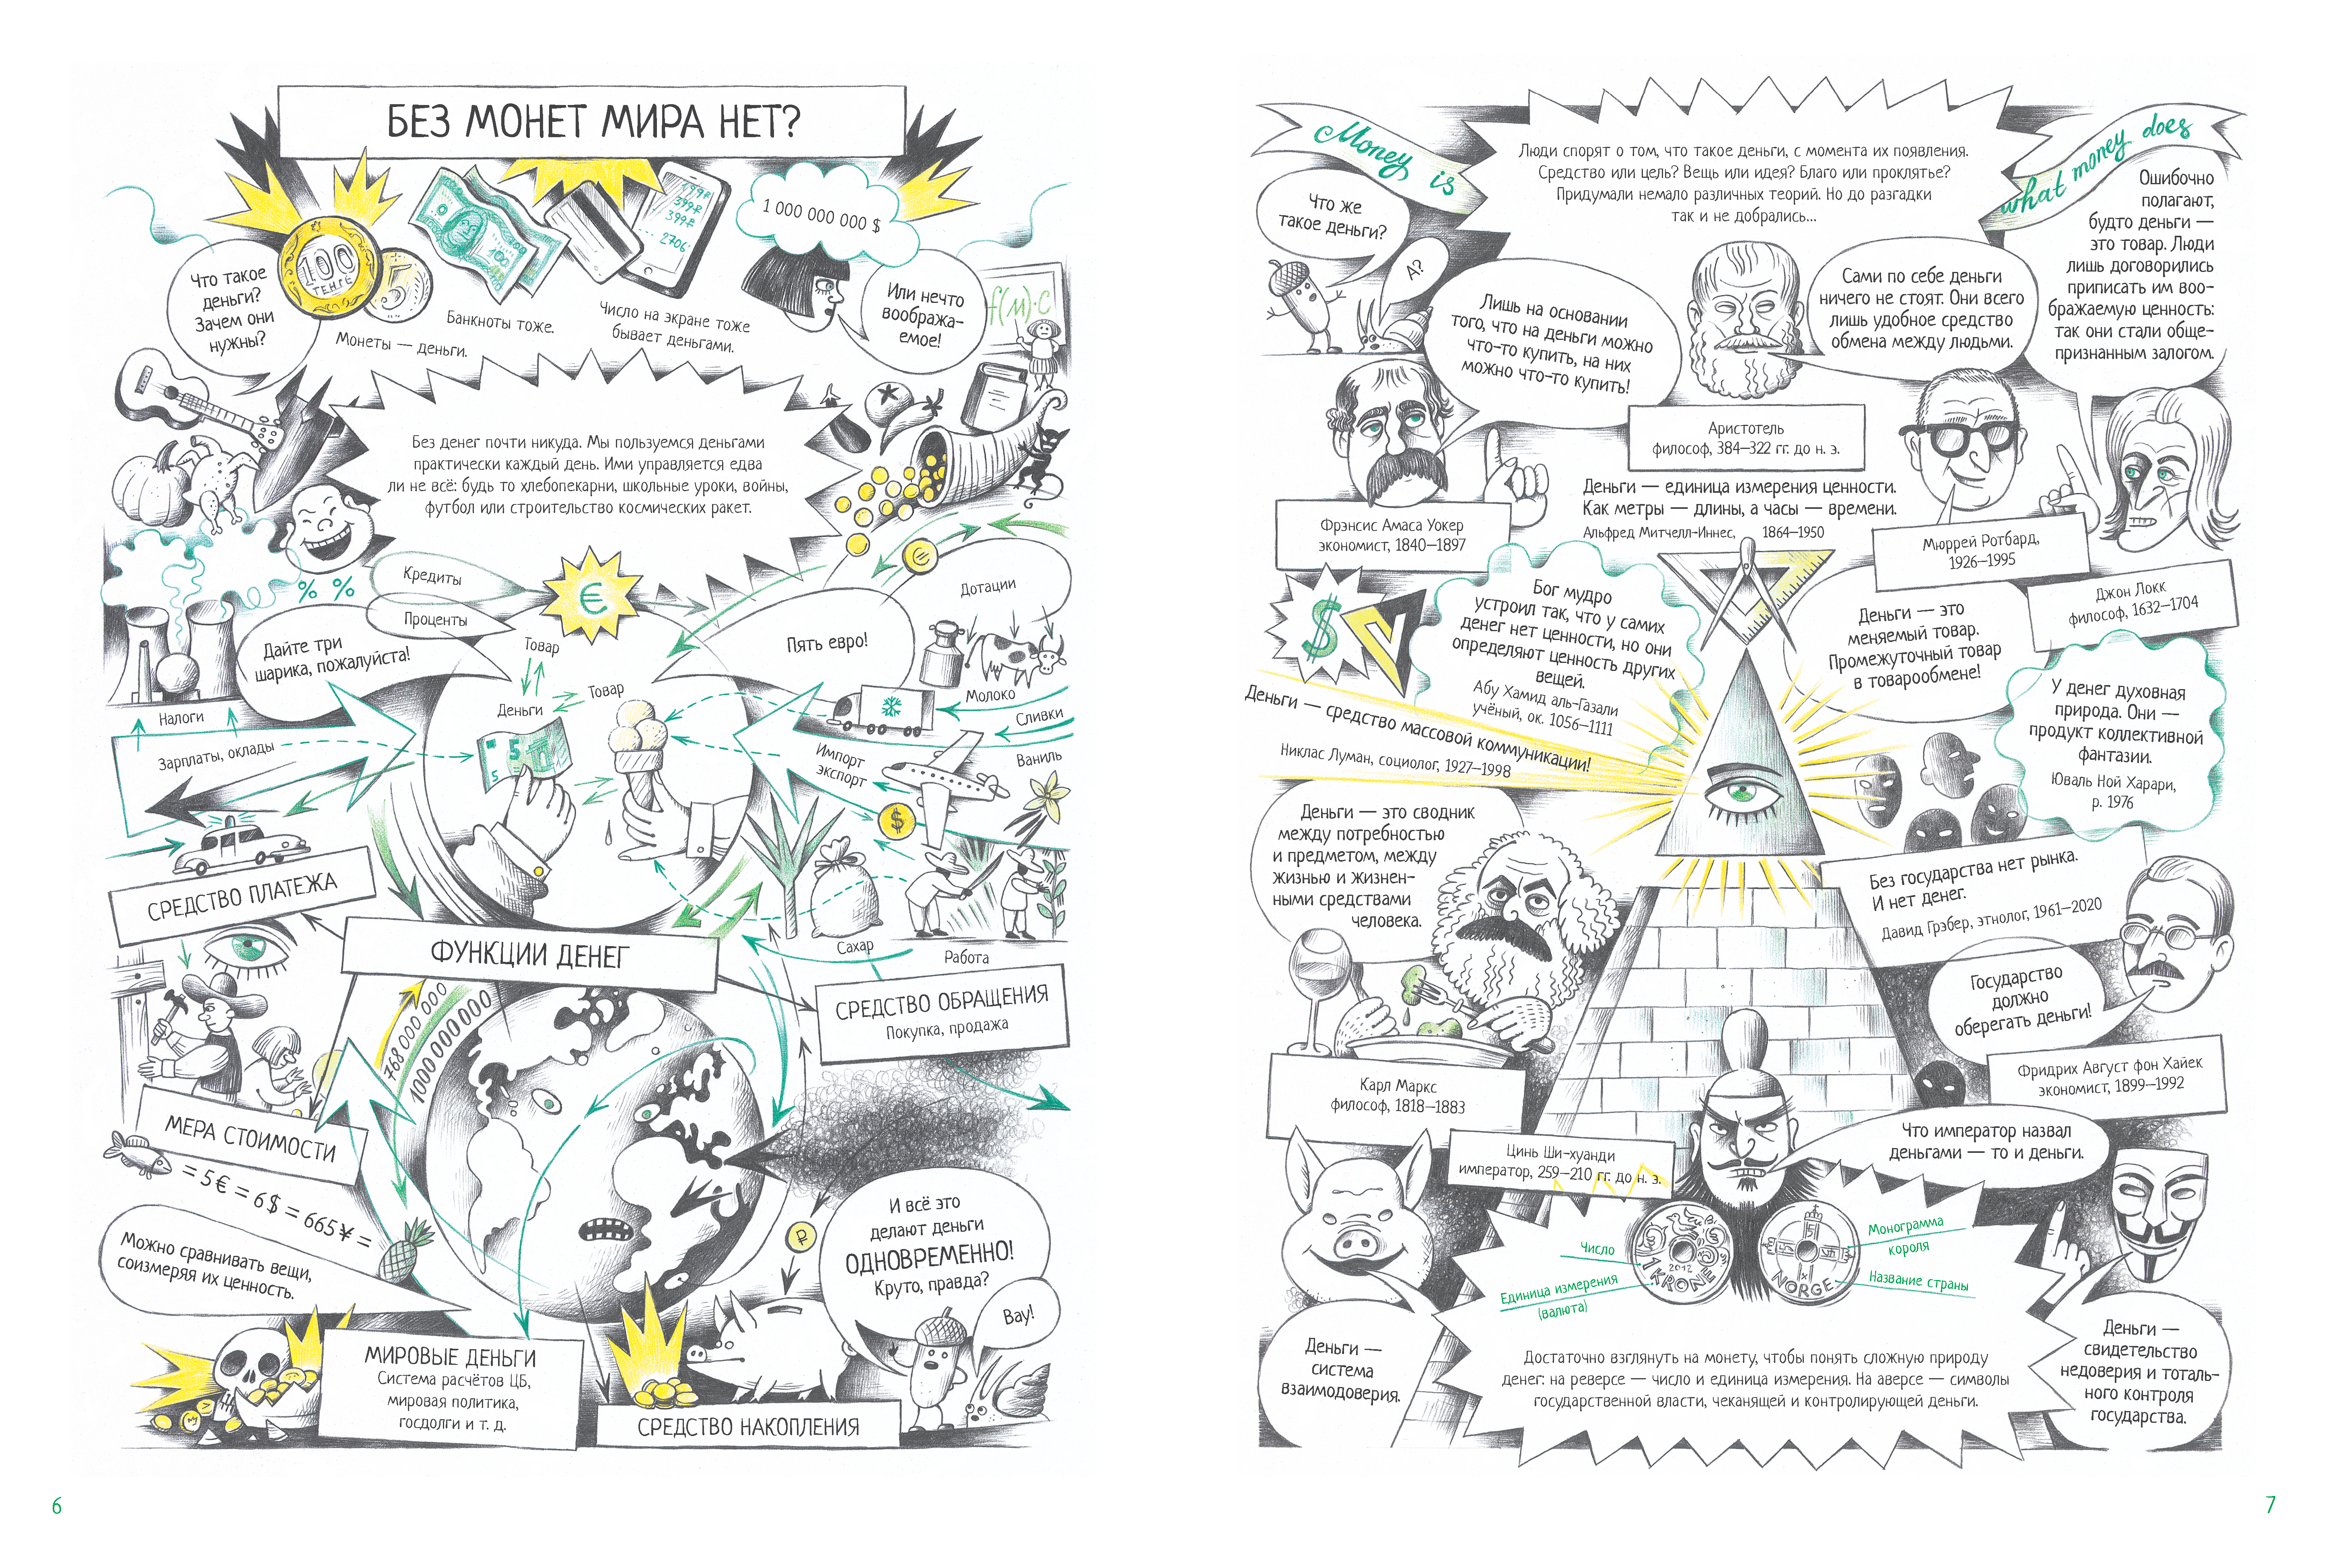 БЕЗ МОНЕТ МИРА НЕТ?
Что такое
деньги?
Зачем они
нужны?
100
ТЕНГЕ
5
Монеты — деньги.
100
Банкноты тоже.
199₽
399₽
399₽
2706
Число на экране тоже
бывает деньгами.
1 000 000 000 $
Или нечто
вообража-
емое!
f(м)·С
Без денег почти никуда. Мы пользуемся деньгами
практически каждый день. Ими управляется едва
ли не всё: будь то хлебопекарни, школьные уроки, войны,
футбол или строительство космических ракет.
% %
Кредиты
Проценты
€
€
Дотации
Дайте три
шарика, пожалуйста!
Пять евро!
Товар
Товар
Деньги
5
5
Молоко
Сливки
Ваниль
Импорт
экспорт
$
Налоги
Зарплаты, оклады
Сахар
Работа
СРЕДСТВО ПЛАТЕЖА
ФУНКЦИИ ДЕНЕГ
СРЕДСТВО ОБРАЩЕНИЯ
Покупка, продажа
768 000 000
1000 000 000
МЕРА СТОИМОСТИ
= 5€ = 6$ = 665¥ =
Можно сравнивать вещи,
соизмеряя их ценность.
₽
И всё это
делают деньги
ОДНОВРЕМЕННО!
Круто, правда?
Вау!
МИРОВЫЕ ДЕНЬГИ
Система расчётов ЦБ,
мировая политика,
госдолги и т. д.
СРЕДСТВО НАКОПЛЕНИЯ
6
Money is
what money does
Люди спорят о том, что такое деньги, с момента их появления.
Средство или цель? Вещь или идея? Благо или проклятье?
Придумали немало различных теорий. Но до разгадки
так и не добрались...
Что же
такое деньги?
А?
Лишь на основании
того, что на деньги можно
что-то купить, на них
можно что-то купить!
Фрэнсис Амаса Уокер
экономист, 1840–1897
Сами по себе деньги
ничего не стоят. Они всего
лишь удобное средство
обмена между людьми.
Аристотель
философ, 384–322 гг. до н. э.
Ошибочно
полагают,
будто деньги —
это товар. Люди
лишь договорились
приписать им воо-
бражаемую ценность:
так они стали обще-
признанным залогом.
Джон Локк
философ, 1632–1704
Деньги — единица измерения ценности.
Как метры — длины, а часы — времени.
Альфред Митчелл-Иннес, 1864–1950
Мюррей Ротбард,
1926–1995
Деньги — это
меняемый товар.
Промежуточный товар
в товарообмене!
$
Бог мудро
устроил так, что у самих
денег нет ценности, но они
определяют ценность других
вещей.
Абу Хамид аль-Газали
учёный, ок. 1056–1111
Деньги — средство массовой коммуникации!
Никлас Луман, социолог, 1927–1998
У денег духовная
природа. Они —
продукт коллективной
фантазии.
Юваль Ной Харари,
р. 1976
Деньги — это сводник
между потребностью
и предметом, между
жизнью и жизнен-
ными средствами
человека.
Карл Маркс
философ, 1818–1883
Без государства нет рынка.
И нет денег.
Давид Грэбер, этнолог, 1961–2020
Государство
должно
оберегать деньги!
Фридрих Август фон Хайек
экономист, 1899–1992
Цинь Ши-хуанди
император, 259–210 гг. до н. э.
Что император назвал
деньгами — то и деньги.
Число
Единица измерения
(валюта)
2012
1 KRONE
NORGE
Монограмма
короля
Название страны
Деньги —
система
взаимодоверия.
Достаточно взглянуть на монету, чтобы понять сложную природу
денег: на реверсе — число и единица измерения. На аверсе — символы
государственной власти, чеканящей и контролирующей деньги.
Деньги —
свидетельство
недоверия и тоталь-
ного контроля
государства.
7